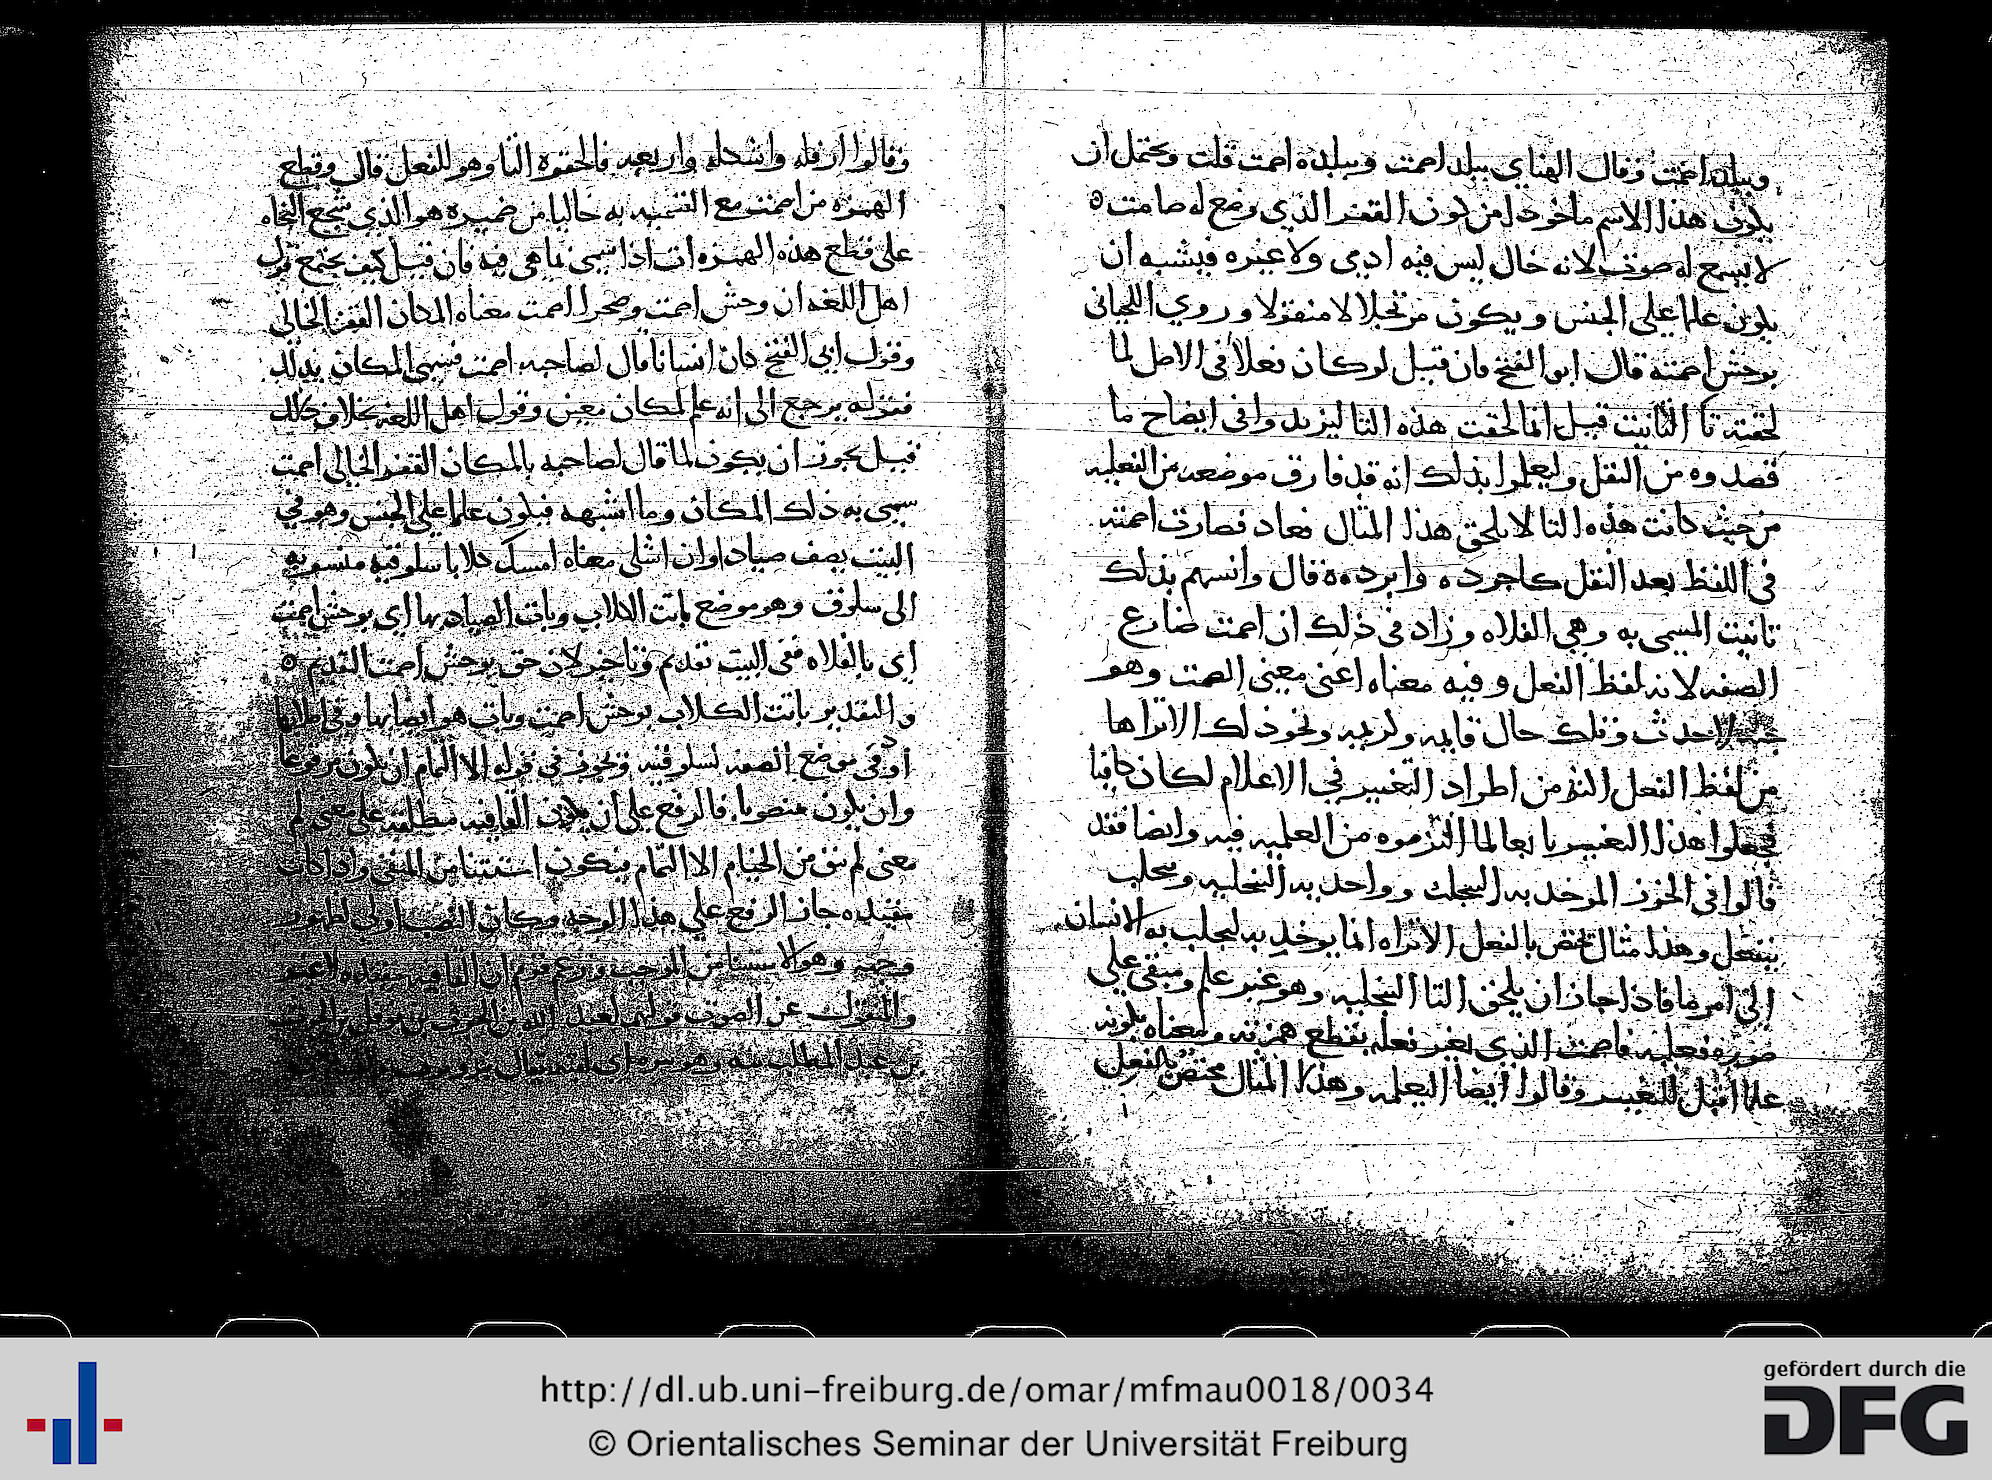 وببلد اصمت وقال الهنائي ببلد اصمت وببلده اصمت قلت ويحتمل ان
يكون هذا الاسم ماخوذا من كون القفر الذي وضع له صامت ه
لا يسمع له صوت لانه خال ليس فيه ادمي ولا غيره فيشبه ان
يكون علما على الجنس ويكون مرتجلا لا منقولا وروي اللحياني
بوحش اصمتة قال ابو الفتح فان قيل لو كان فعلا في الاصل لما
لحقته تا التانيث قيل انما لحقت هذه التا ليزيد وا في ايضاح ما
قصدوه من النقل وليعلموا بذلك انه قد فارق موضعه من الفعليه
من حيث كانت هذه التا لا يلحق هذا المثال فعاد فصارت اصمته
في اللفظ بعد النقل كاجرده وابرده قال وانسهم بذلك
تانيث المسمى به وهي الفلاه وزاد في ذلك ان اصمت ضارع
الصفه لانه لفظ الفعل وفيه معناه اعني معنى الصمت وهو
الحدث وتلك حال قايمه وكريمه ونحو ذلك الا تراها
من لفظ الفعل من اطراد التغيير في الاعلام لكان كافيا
فجعلوا هذا التغيير تابعا لما التزموه من العلميه فيه وايضا فقد
قالوا في الخرز الموخذ به الينجلب وواحد به الينجلبه وينجلب
ينفعل وهذا مثال مختص بالفعل الا تراه انما يوخذ به ليجلب به الانسان
الى امر ما فاذا جاز ان يلحق التا الينجلبه وهو غير علم ومبقى على
صوره فعليه فاصمت الذي تغير فعله بقطع همزته ومعناه بكونه
علما اقبل للتغيير وقالوا ايضا اليعلمه وهذا المثال مختص بالفعل
وقالوا ارفله وانشدله واربعه فالحقوه التا وهو للفعل قال وقطع
الهمزه من اصمت مع التسميه به خاليا من ضميره هو الذي شجع النحاه
على قطع هذه الهمزات اذا سمي بما هي فيه فان قيل كيف يجتمع قول
اهل اللغه ان وحش اصمت وصحرا اصمت معناه المكان القفر الخالي
وقول ابي الفتح كان انسانا قال لصاحبه اصمت فسمي المكان بذلك
فقوله يرجع الى انه علم لمكان معين وقول اهل اللغه بخلاف ذلك
قيل يجوز ان يكون لما قال لصاحبه بالمكان القفر الخالي اصمت
سمي به ذلك المكان وما اشبهه فيكون علما على الجنس وهو في
البيت يصف صيادا وان اشلى معناه امسك كلابا سلوقيه منسوبه
الى سلوق وهو موضع باتت الكلاب وبات الصياد بها اي بوحش اصمت
اي بالفلاه ففي البيت تقديم وتاخير لان حق بوحش اصمت التقديم ه
والتقدير باتت الكلاب بوحش اصمت وبات هو ايضا بها وفي
او في موضع الصفه لسلوقيه ويجوز في قوله الا الثمام ان يكون مرفوعا
وان يكون منصوبا فالرفع على ان يكون القافيه مطلقه على معنى لم
معنى لم يبق من الخيام الا الثمام فيكون استثنا من المنفي واذا كانت
مقيده جاز الرفع على هذا الوجه وكان النصب اولى لظهور
وجهه وهو الاستثنا من الموجب وزعم قوم ان القافيه مقيده لا غير
والمنقول عن الصوت قولهم لعبد الله بن الحرث بن نوفل بن الحرث
بن عبد المطلب ببه
http://dl.ub.uni-freiburg.de/omar/mfmau0018/0034
© Orientalisches Seminar der Universität Freiburg
gefördert durch die
DFG